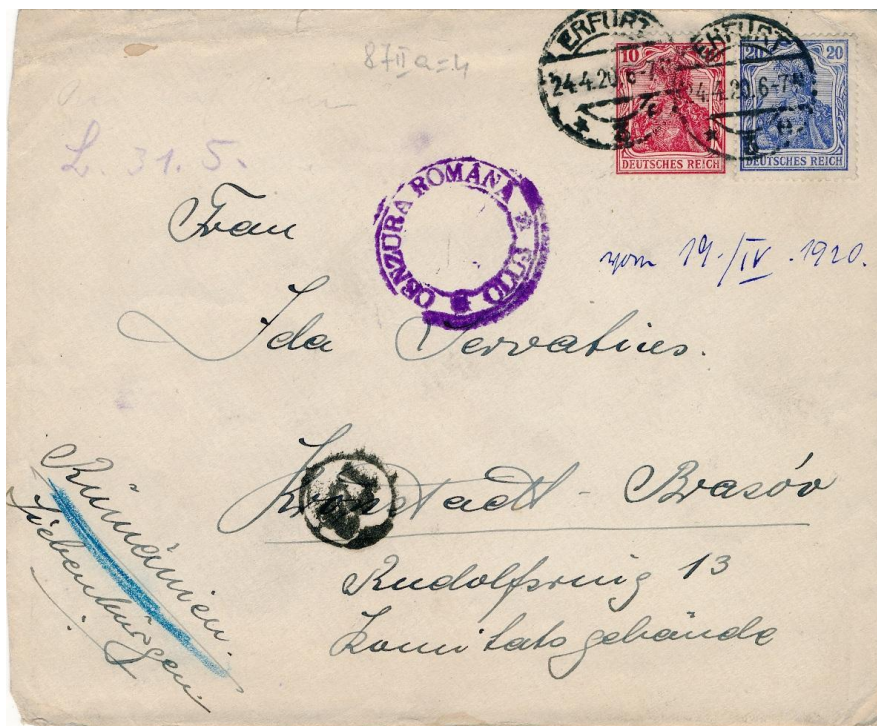 ERFURT ERFURT
24.4.20. 6-7N 4.4.20. 6-7N
10 20 20
DEUTSCHES REICH DEUTSCHES REICH
87 II a = 4
L. 31. 5.
CENZURA ROMÂNĂ
vom 19./IV. 1920.
Frau
Ida Servatius.
Kronstadt - Brasóv
Rudolfsring 13
Komitatsgebäude
Rumänien.
Siebenbürgen.